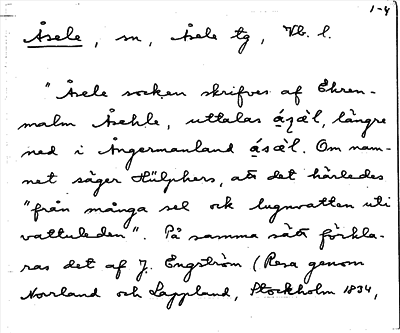 1-4
Åsele, sn, Åsele tg, Vb. l.
"Åsele socken skrifves af Ehren-
malm Åsehle, uttalas längre
ned i Ångermanland Om nam-
net säger Hülphers, att det härledes
"från många sel och lugnvatten uti
vattuleden". På samma sätt förkla-
ras det af J. Engström (Resa genom
Norrland och Lappland, Stockholm 1834,